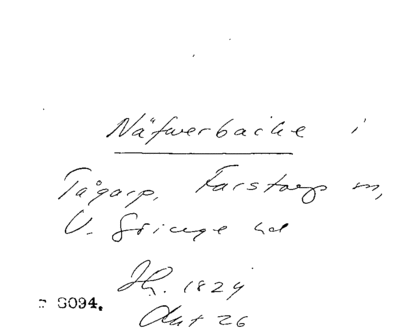 Näfwerbacke i
Tågarp, Farstorp sn,
V. Göinge hd
Jh. 1824
Aut 26
S094.